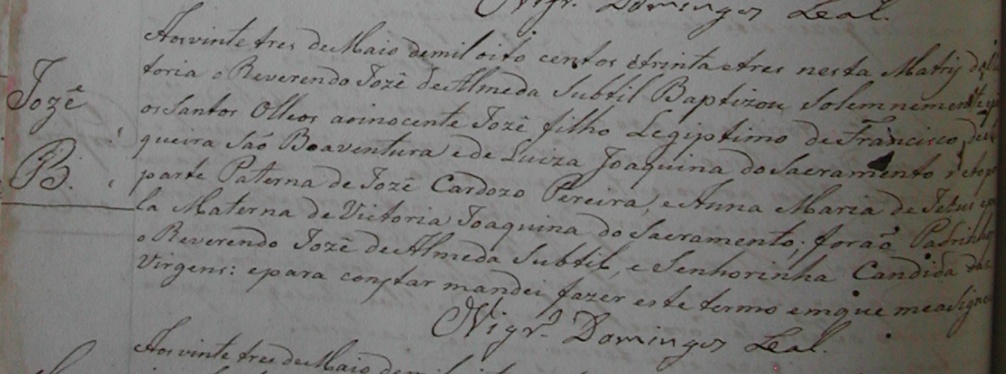 Vigrº. Domingos Leal.
Jozê
B.
Aos vinte tres de Maio de mil oito centos e trinta e tres nesta Matriz de
toria o Reverendo Jozê de Almeda Subtil Baptizou Solemnemente e
os Santos Olleos ao inocente Jozê filho Legiptimo de Francisco de
queira São Boaventura e de Luiza Joaquina do Sacramento
parte Paterna de Jozê Cardozo Pereira, e Anna Maria de Jezus e
la Materna de Victoria Joaquina do Sacramento; forão Padrinhos
o Reverendo Jozê de Almeda Subtil, e Senhorinha Candida das
Virgens: e para conſtar mandei fazer este termo em que me asignei
Vigrº. Domingos Leal.
Aos vinte tres de Maio de mil